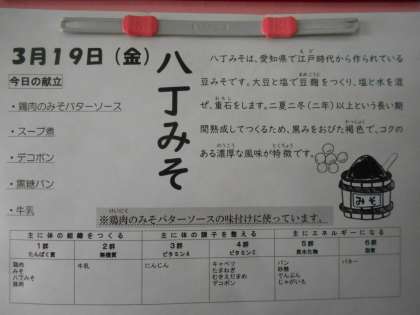 3月19日（金）
今日の献立
・鶏肉のみそバターソース
・スープ煮
・デコポン
・黒糖パン
・牛乳
八丁みそ
八丁みそは、愛知県で江戸時代から作られている
豆みそです。大豆と塩で豆麹をつくり、塩と水を混
ぜ、重石をします。二夏二冬（二年）以上という長い期
間熟成してつくるため、黒みをおびた褐色で、コクの
ある濃厚な風味が特徴です。
みそ
※鶏肉のみそバターソースの味付けに使っています。
主に体の組織をつくる
主に体の調子を整える
主にエネルギーになる
1群 2群 3群 4群 5群 6群
たんぱく質 無機質 ビタミンA ビタミンC 炭水化物 脂質
鶏肉
みそ
八丁みそ
豚肉
牛乳
にんじん
キャベツ
たまねぎ
むきえだまめ
デコポン
パン
砂糖
でんぷん
じゃがいも
バター